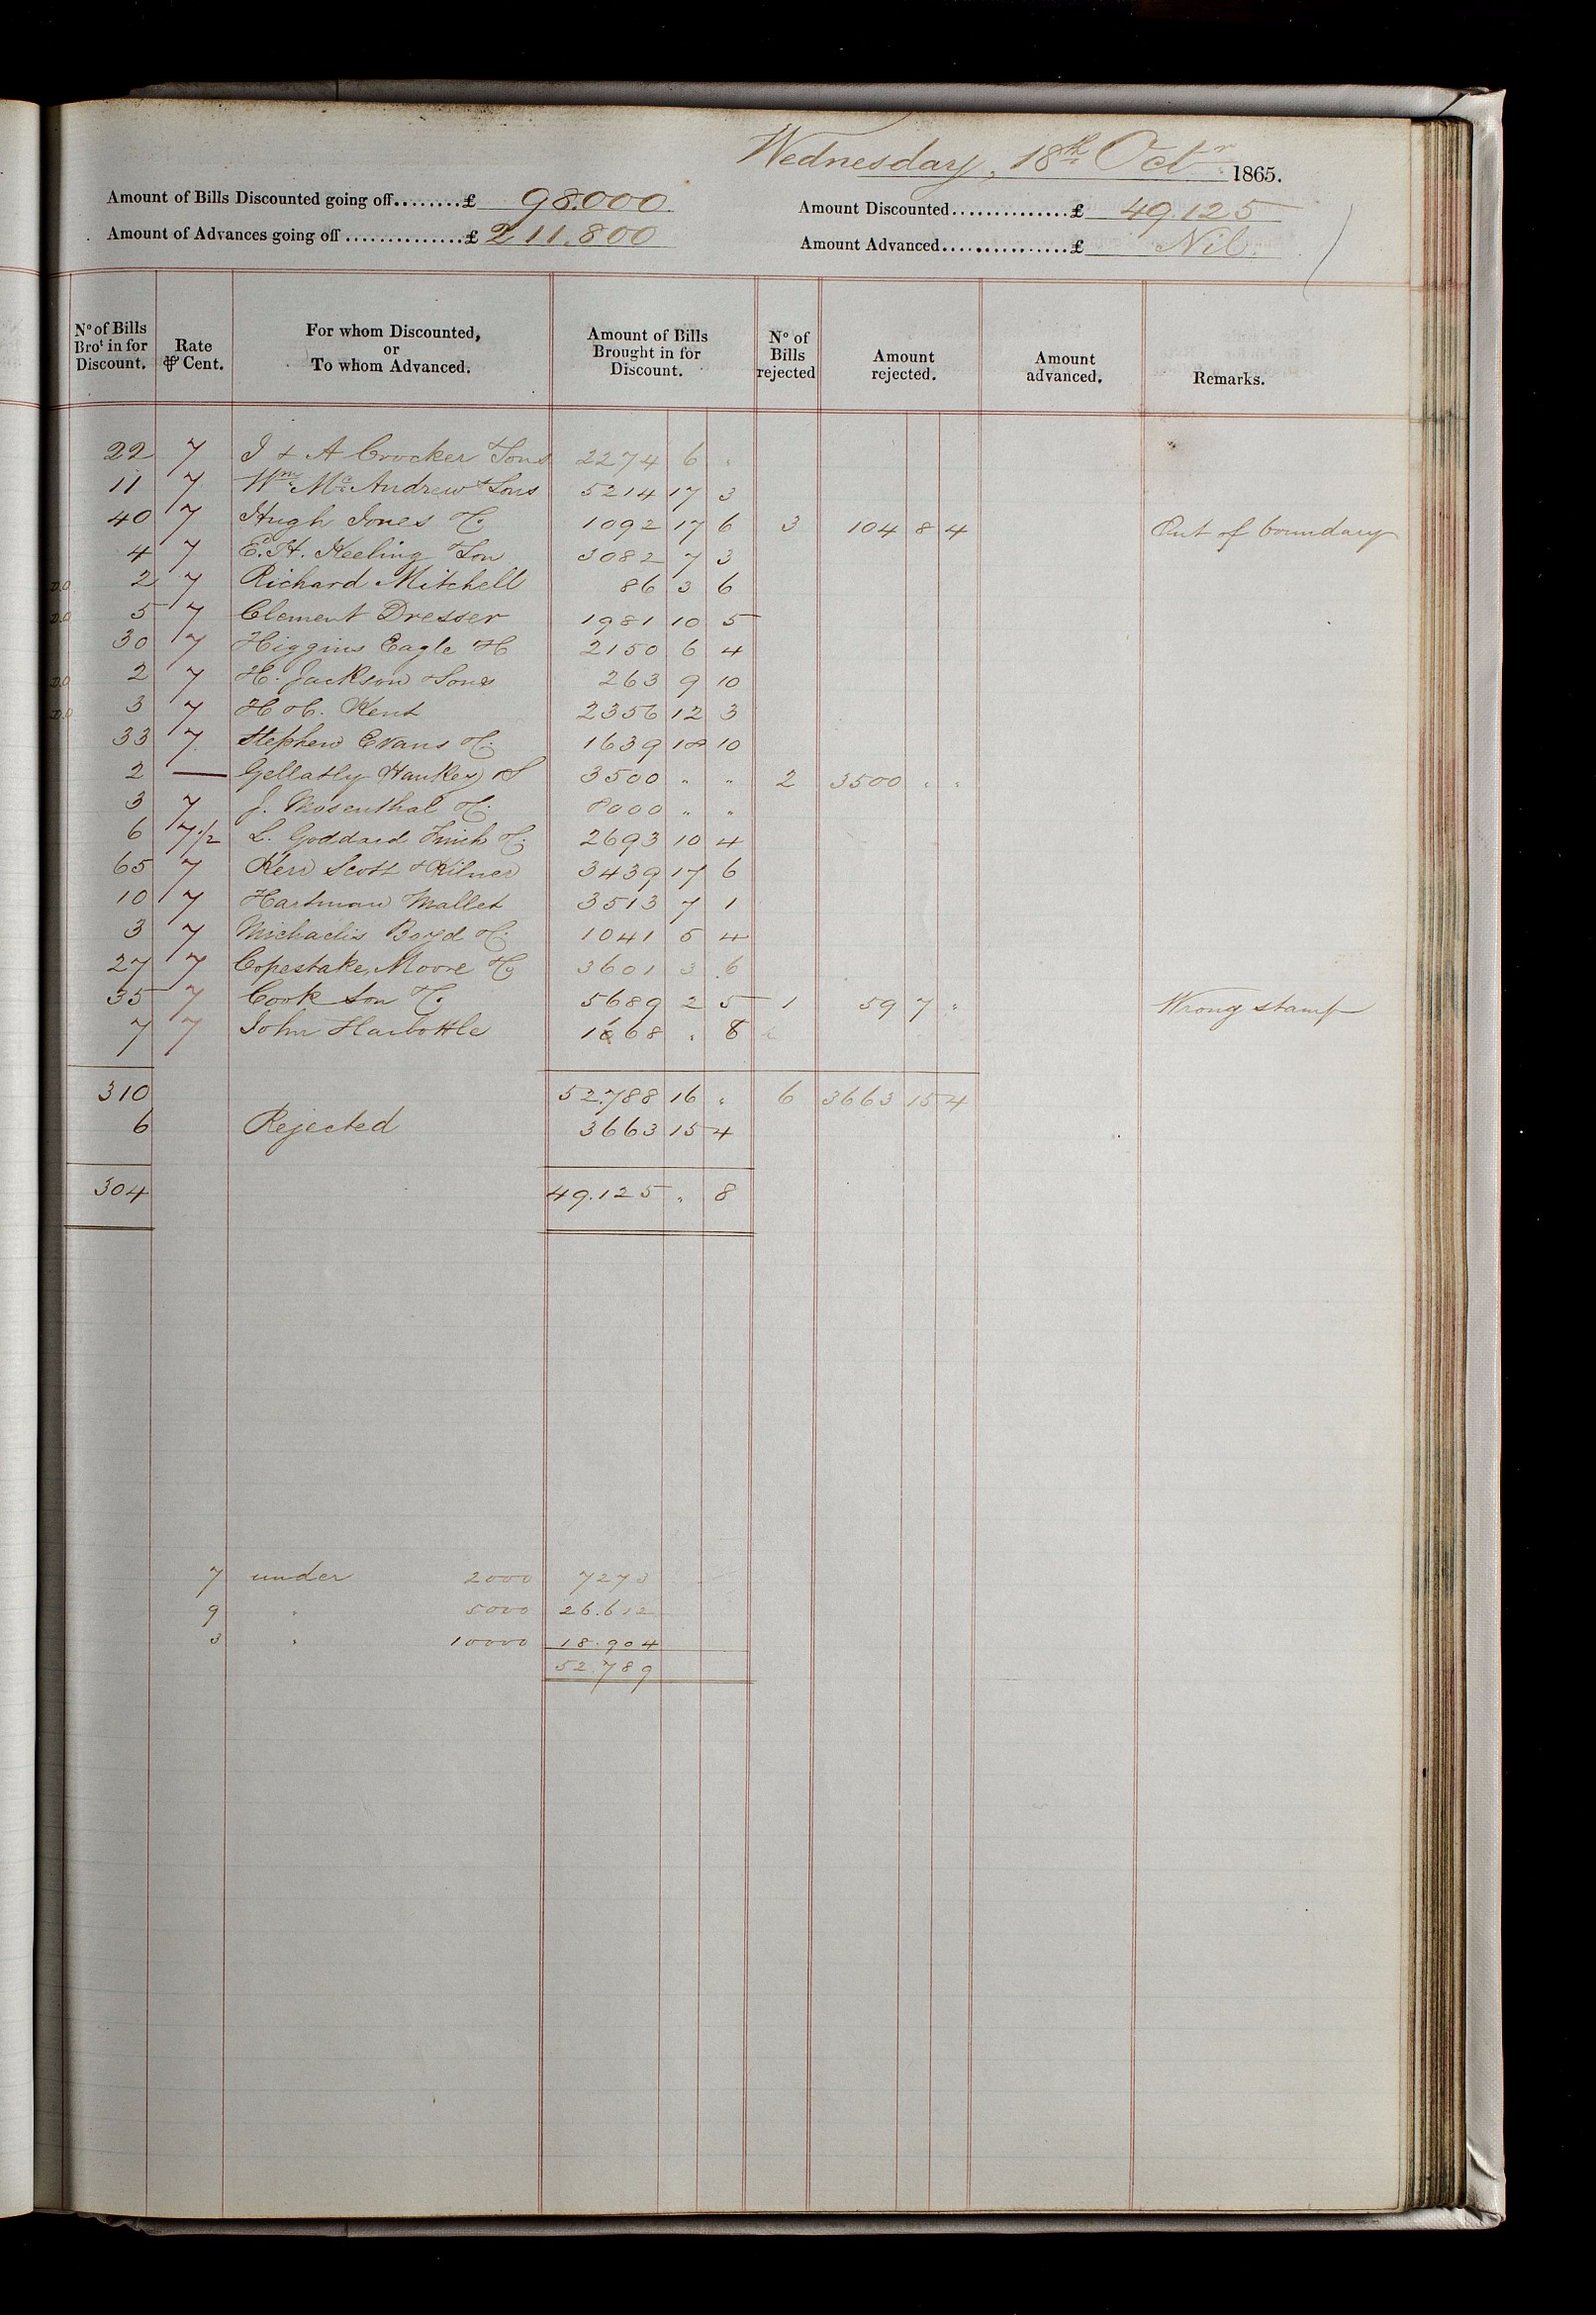 Wednesday, 18th Octr 1865.
Amount of Bills Discounted going off........£ 98.000
Amount Discounted..............£ 49.125
Amount of Advances going off ...............£ 211.800
Amount Advanced................£ Nil.
No of Bills Brot in for Discount. Rate ⅌ Cent. For whom Discounted, or To whom Advanced. Amount of Bills Brought in for Discount. No of Bills rejected Amount rejected. Amount advanced. Remarks.
22 7 J & A Crocker & Sons 2274 6 "
11 7 Wm McAndrew & Sons 5214 17 3
40 7 Hugh Jones & Co 1092 17 6 3 104 8 4 Out of boundary
4 7 E. H. Keeling & Son 3082 7 3
D.A 2 7 Richard Mitchell 86 3 6
D.A 5 7 Clement Dresser 1981 10 5
30 7 Higgins Eagle & Co 2150 6 4
D.A 2 7 H. Jackson & Sons 263 9 10
D.A 3 7 H & C. Kent 2356 12 3
33 7 Stephen Evans & Co 1639 18 10
2 — Gellatly Hankey & S 3500 " " 2 3500 " "
3 7 J. Mosenthal & Co 8000 " "
6 7 1/2 L. Goddard Finch & Co 2693 10 4
65 7 Kerr Scott & Kilner 3439 17 6
10 7 Hartman Mallet 3513 7 1
3 7 Michaelis Boyd & Co 1041 5 4
27 7 Copestake, Moore & Co 3601 3 6
35 7 Cook Son & Co 5689 2 5 1 59 7 " Wrong stamp
7 7 John Harbottle 1168 " 8
310 52.788 16 " 6 3663 15 4
6 Rejected 3663 15 4
304 49.125 " 8
7 under 2000 7273
9 " 5000 26.612
3 " 10000 18.904
52.789